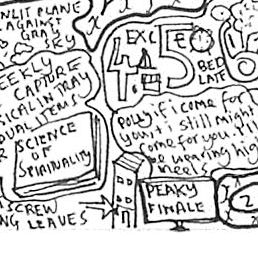 NLIT PLANE
AGAINST
GRAY
SKY
EEKLY
CAPTURE
SICAL IN TRAY
DUAL ITEMS
SCIENCE
OF
SPIRITUALITY
SCREW
NG LEAVES
EXC
BED
LATE
POLLY. if i come for
you, i still might
come for you. I'll
be wearing hig
heels
PEAKY
FINALE
2